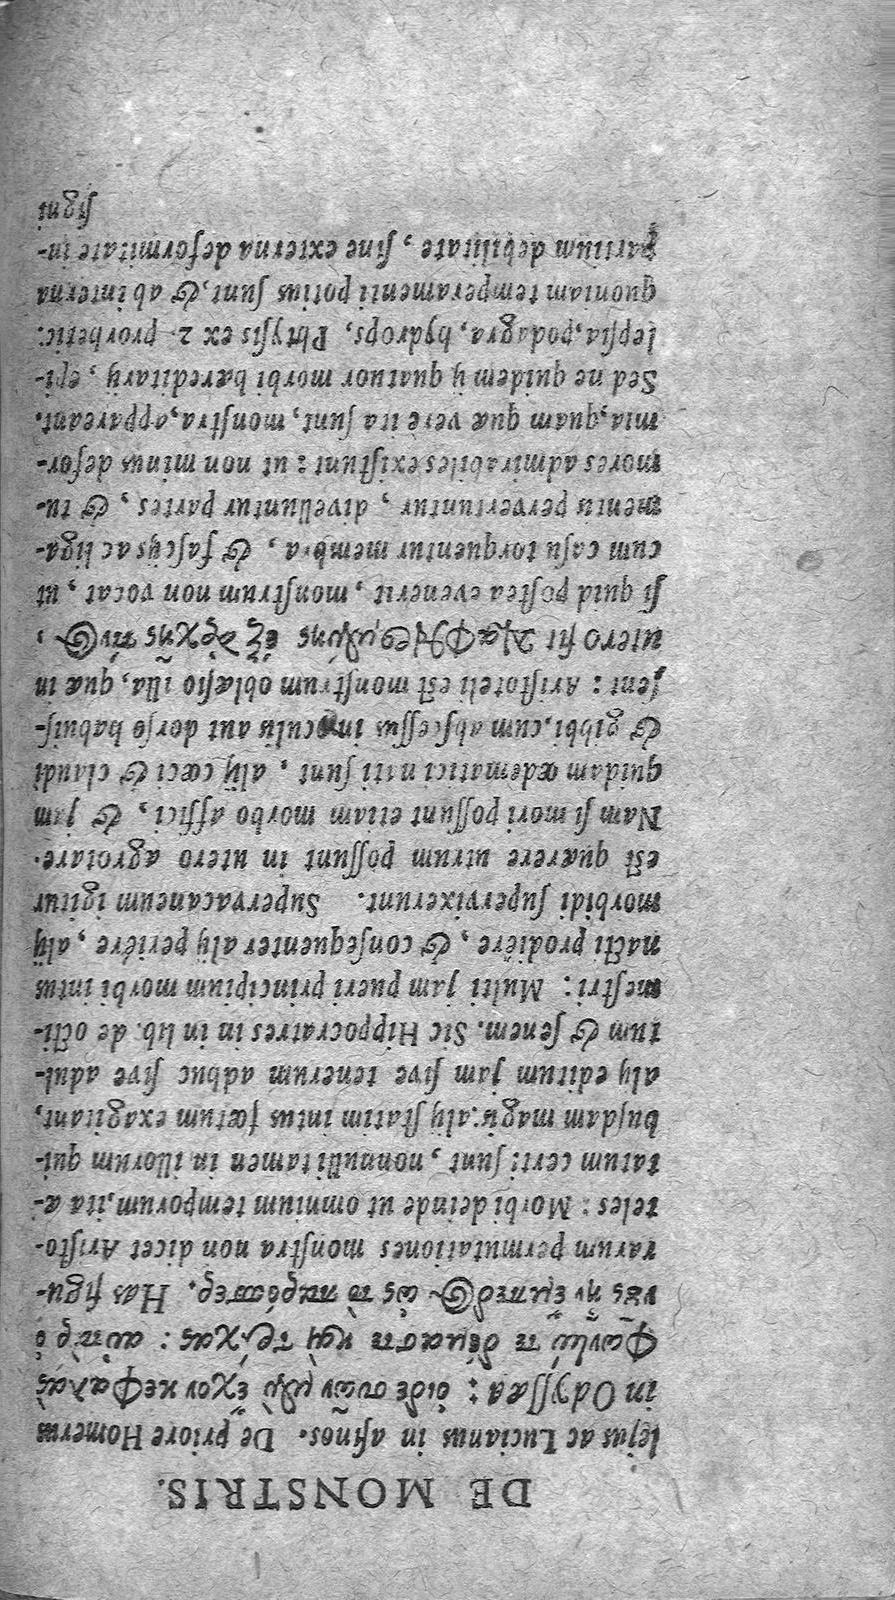 DE MONSTRIS.
lejus ac Lucianus in asinos. De priore Homerus
in Odyssæa: οἱ δὲ συῶν μὲν ἔχον κεφαλὰς
φωνήν τε δέμας τε καὶ τρίχας: αὐτὰρ ὁ
νοῦς ἦν ἔμπεδος ὡς τὸ πάροσπερ. Has figu-
rarum permutationes monstra non dicet Aristo-
teles: Morbi deinde ut omnium temporum, ita æ-
tatum certi sunt, nonnulli tamen in illorum qui-
busdam magis: alij statim intus fœtum exagitant,
alij editum jam sive tenerum adhuc sive adul-
tum & senem. Sic Hippocratres in in lib. de octi-
mestri: Multi jam pueri principium morbi intus
nacti prodiêre, & consequenter alij periêre, alij
morbidi supervixerunt. Supervacaneum igitur
est quærere utrum possunt in utero ægrotare.
Nam si mori possunt etiam morbo affici, & jam
quidam œdematici nati sunt, alij cæci & claudi
& gibbi, cum abscessus in oculis aut dorso habuis-
sent: Aristoteli est monstrum oblæsio illa, quæ in
utero fit ἐξ ἀρχῆς
si quid postea evenerit, monstrum non vocat, ut
cum casu torquentur membra, & fascijs ac liga-
mentis pervertuntur, divelluntur partes, & tu-
mores admirabiles existunt: ut non minus defor-
mia, quam quæ vere ita sunt, monstra, appareant.
Sed ne quidem ij quatuor morbi hæreditarij, epi-
lepsia, podagra, hydrops, Phtysis ex 2. prorhetic:
quoniam temperamenti potius sunt, & ab interna
partium debilitate, sine externa deformitate in-
signi